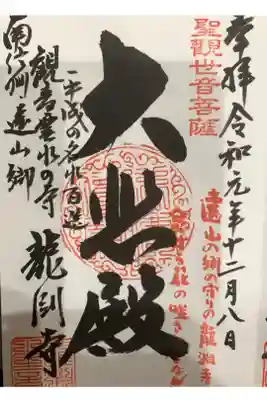 奉拝令和元年十二月八日
聖觀世音菩薩
遠山の郷の守りの龍淵寺
大悲殿
平成の名水百選
観音霊水の寺 龍淵寺
南信州遠山郷